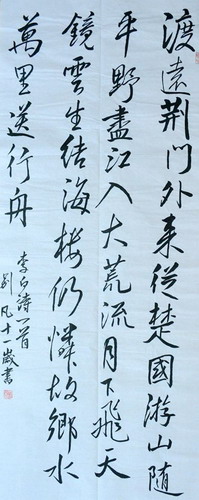 渡遠荆門外来從楚國游山随
平野盡江入大荒流月下飛天
鏡雲生结海楼仍憐故鄉水
萬里送行舟
李白詩一首
刘凡十一歲書